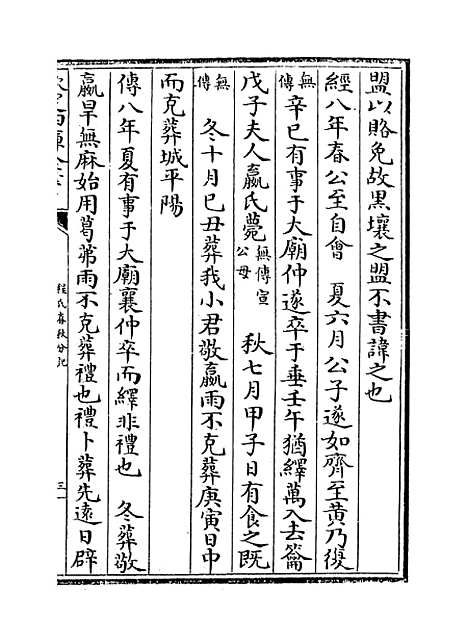 盟以賂免故黒壤之盟不書諱之也
經八年春公至自會　夏六月公子遂如齊至黄乃復
無傳　辛巳有事于大廟仲遂卒于垂壬午猶繹萬入去籥
戊子夫人嬴氏薨無傳宣公母　秋七月甲子日有食之既
無傳　冬十月己丑葬我小君敬嬴雨不克葬庚寅日中
而克葬城平陽
傳八年夏有事于大廟襄仲卒而繹非禮也　冬葬敬
嬴旱無麻始用葛茀雨不克葬禮也禮卜葬先遠日辟
程氏春秋分記
三